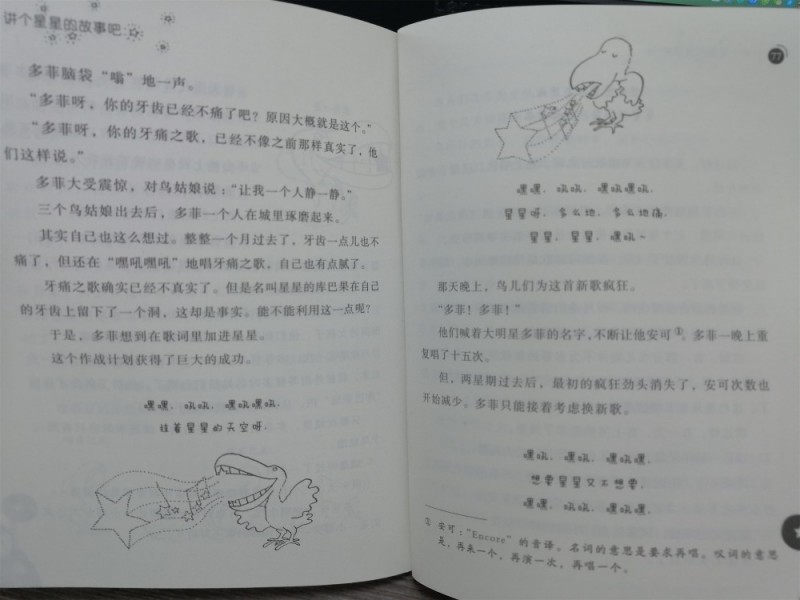 讲个星星的故事吧
多菲脑袋“嗡”地一声。
“多菲呀，你的牙齿已经不痛了吧？原因大概就是这个。”
“多菲呀，你的牙痛之歌，已经不像之前那样真实了，他
们这样说。”
多菲大受震惊，对鸟姑娘说：“让我一个人静一静。”
三个鸟姑娘出去后，多菲一个人在城里琢磨起来。
其实自己也这么想过。整整一个月过去了，牙齿一点儿也不
痛了，但还在“嘿吼嘿吼”地唱牙痛之歌，自己也有点腻了。
牙痛之歌确实已经不真实了。但是名叫星星的库巴果在自己
的牙齿上留下了一个洞，这却是事实。能不能利用这一点呢？
于是，多菲想到在歌词里加进星星。
这个作战计划获得了巨大的成功。
嘿嘿，吼吼，嘿吼嘿吼，
挂着星星的天空呀，
77
嘿嘿，吼吼，嘿吼嘿吼，
星星呀，多么地，多么地痛，
星星，星星，嘿吼～
那天晚上，鸟儿们为这首新歌疯狂。
“多菲！多菲！”
他们喊着大明星多菲的名字，不断让他安可①。多菲一晚上重
复唱了十五次。
但，两星期过去后，最初的疯狂劲头消失了，安可次数也
开始减少。多菲只能接着考虑换新歌。
嘿吼，嘿吼，嘿吼嘿，
想要星星又不想要，
嘿吼，嘿吼，嘿吼嘿，
① 安可：“Encore”的音译。名词的意思是要求再唱。叹词的意思
是，再来一个，再演一次，再唱一个。